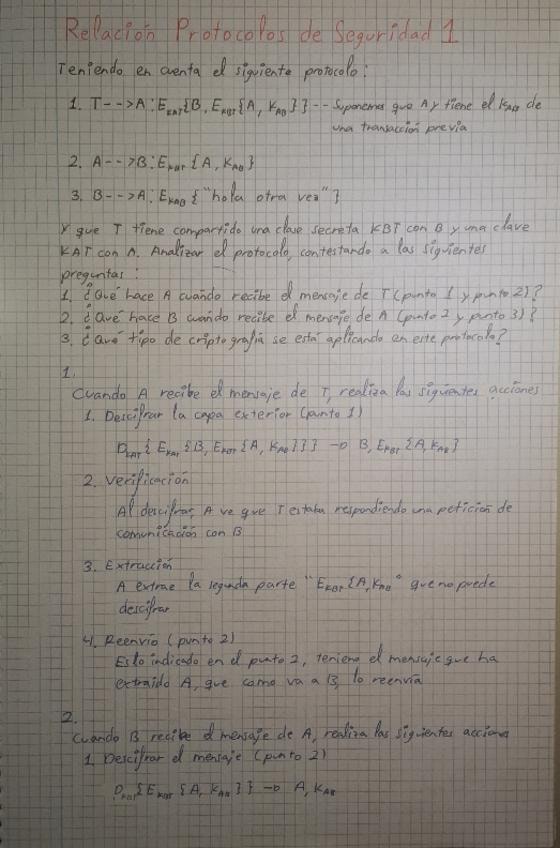 Relación Protocolos de Seguridad 1
Teniendo en cuenta el siguiente protocolo:
1. T-->A: E_KAT{B, E_KBT{A, K_AB}} -- Suponemos que A ya tiene el K_AB de
una transacción previa
2. A-->B: E_KBT{A, K_AB}
3. B-->A: E_KAB{"hola otra vez"}
Y que T tiene compartido una clave secreta KBT con B y una clave
KAT con A. Analizar el protocolo, contestando a las siguientes
preguntas:
1. ¿Qué hace A cuando recibe el mensaje de T (punto 1 y punto 2)?
2. ¿Qué hace B cuando recibe el mensaje de A (punto 2 y punto 3)?
3. ¿Qué tipo de criptografía se está aplicando en este protocolo?
1.
Cuando A recibe el mensaje de T, realiza las siguientes acciones
1. Descifrar la capa exterior (punto 1)
D_KAT{E_KAT{B, E_KBT{A, K_AB}}} -> B, E_KBT{A, K_AB}
2. Verificación
Al descifrar, A ve que T estaba respondiendo una petición de
comunicación con B
3. Extracción
A extrae la segunda parte "E_KBT{A, K_AB" que no puede
descifrar
4. Reenvío (punto 2)
Es lo indicado en el punto 2, el mensaje que ha
extraído A, que como va a B, lo reenvía
2.
Cuando B recibe el mensaje de A, realiza las siguientes acciones
1. Descifrar el mensaje (punto 2)
D_KBT{E_KBT{A, K_AB}} -> A, K_AB